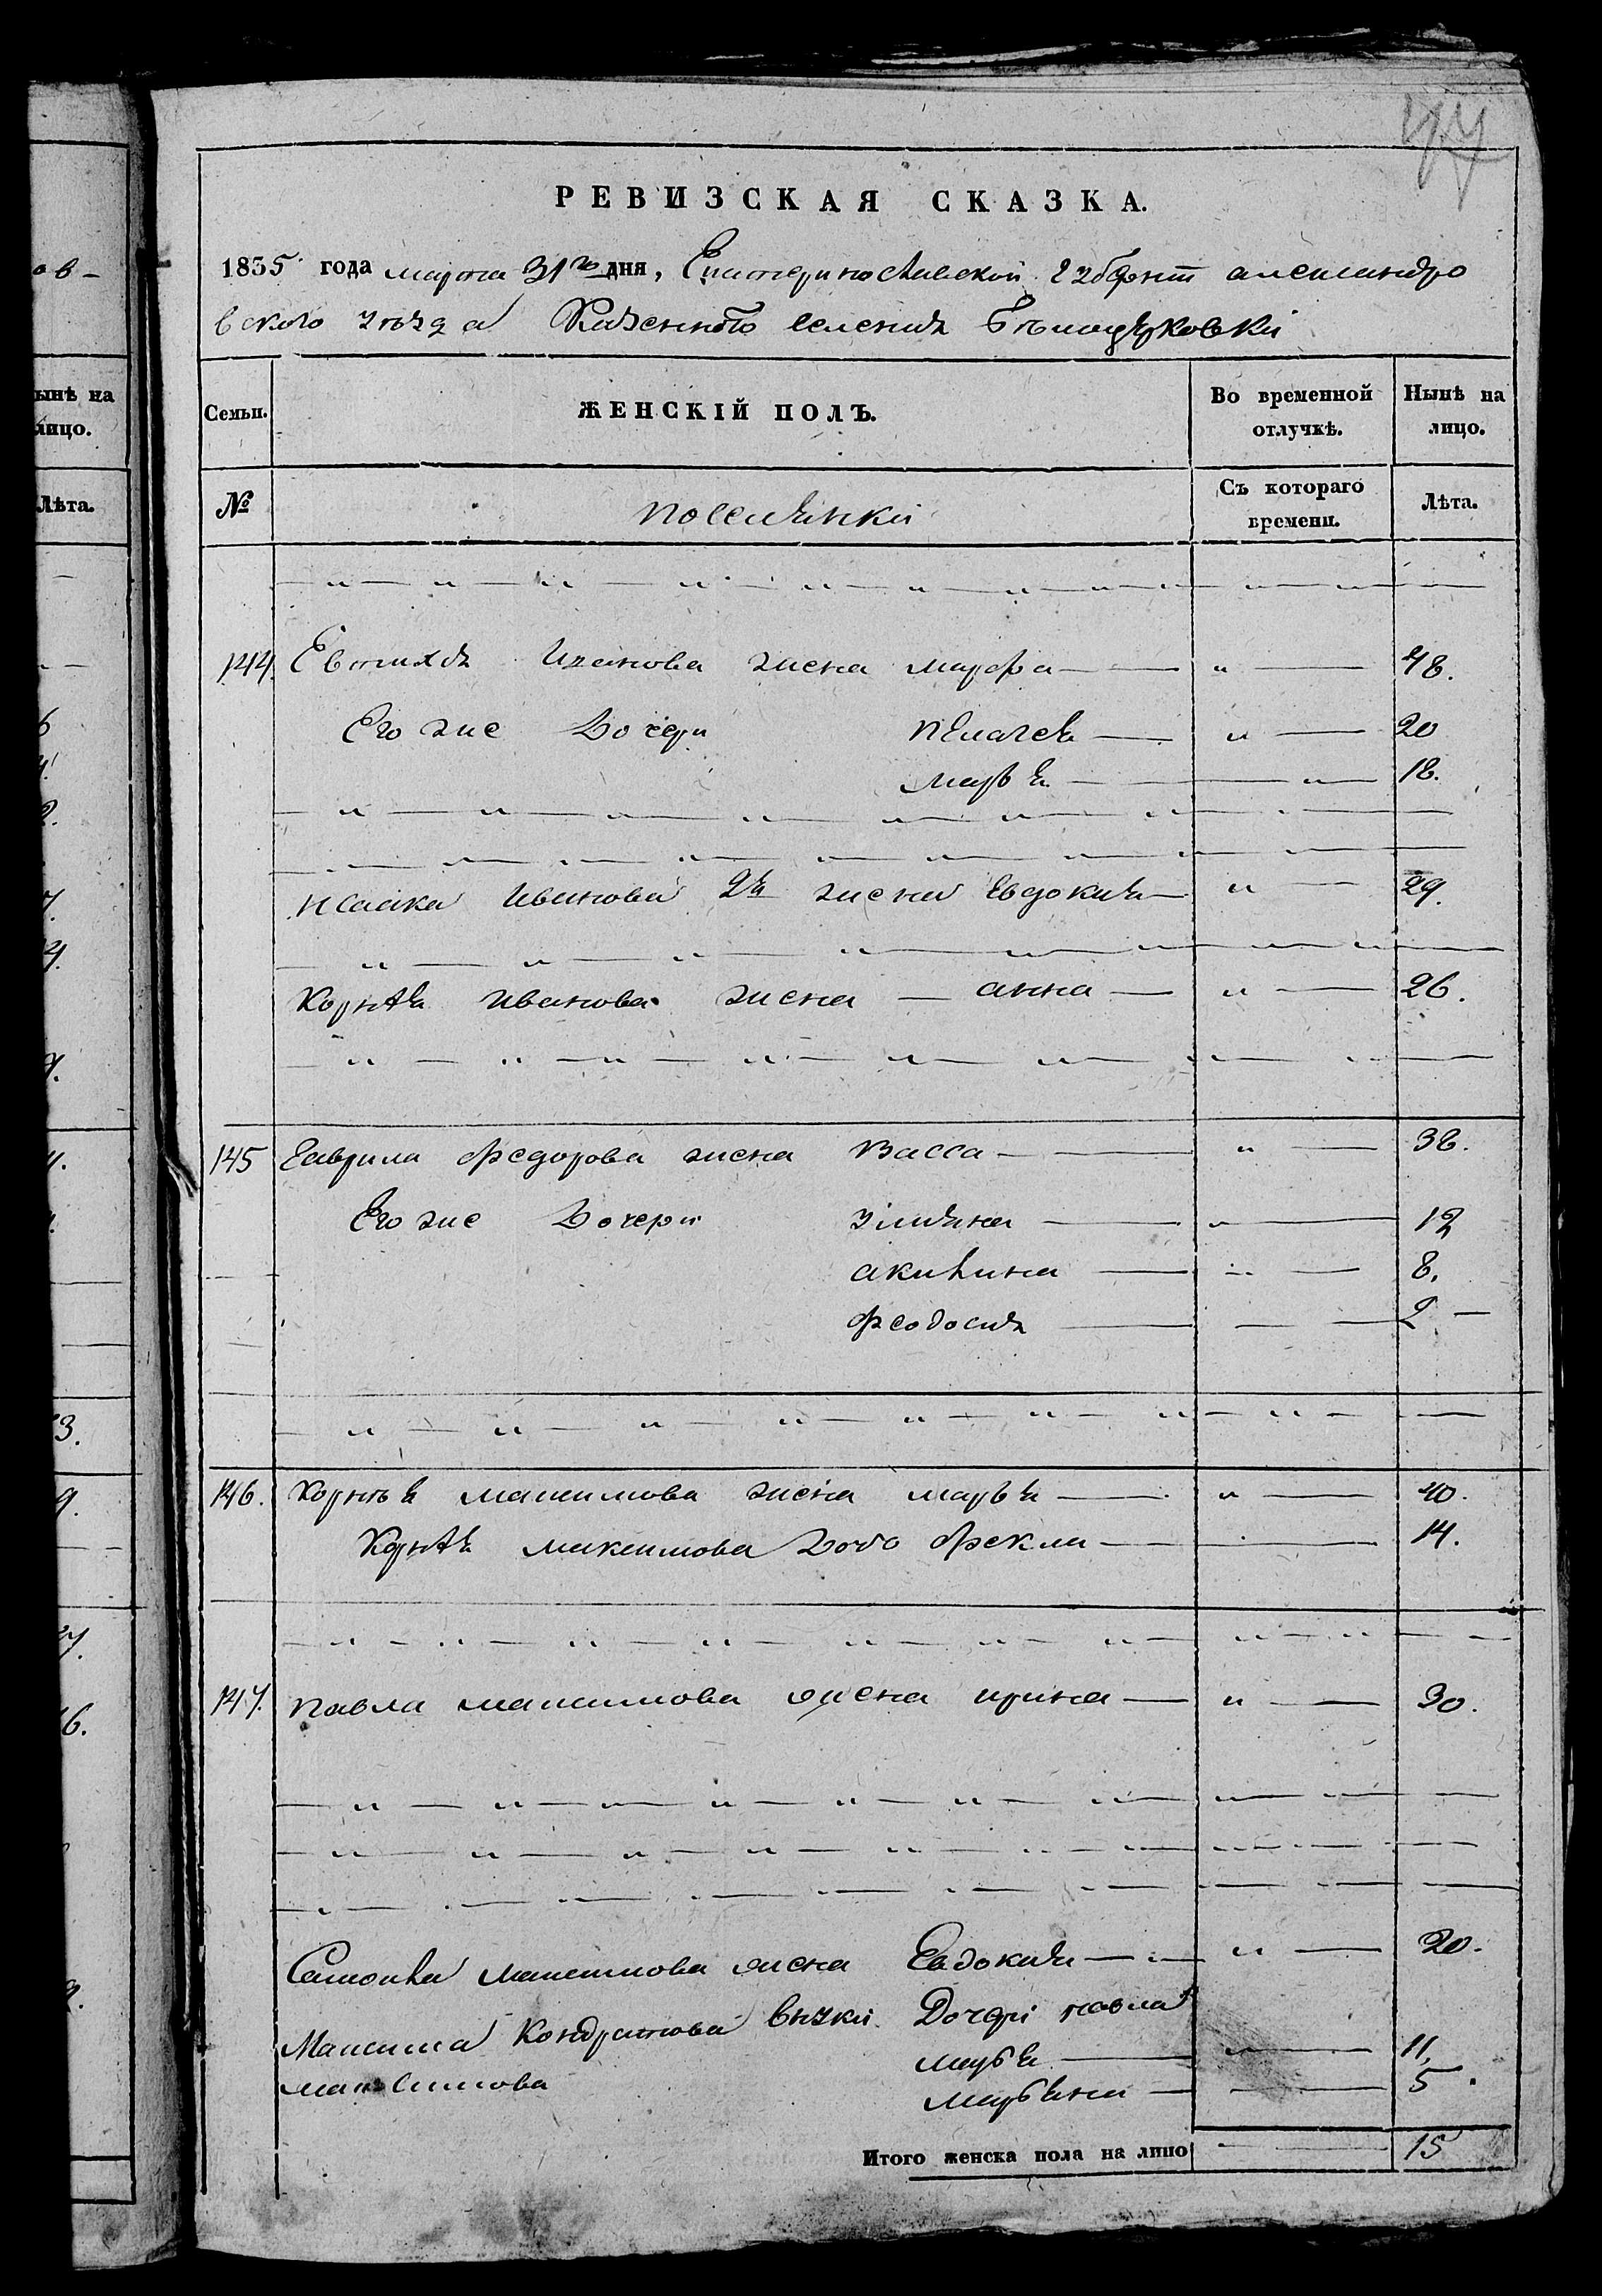 77
РЕВИЗСКАЯ СКАЗКА.
1835 года марта 31го дня, Екатеринославской губерніи александро
вского уезда Казенного селения Белоцерковки
ов-
ынѣ на лицо.
Лѣта.
Семьи. ЖЕНСКІЙ ПОЛЪ. Во временной отлучкѣ. Ныне на лицо.
№ поселянки Съ котораго времени. Лѣта.
144. Евтихия Иванова жена марфа — " — 48.
Его же Дочери пелагея — " — 20
марья — " — 18.
исаака Иванова 2я жена Евдокия — " — 29.
Корнѣя иванова жена — анна — " — 26.
145 Гаврила федорова жена Васса — " — 38.
Его же Дочери улияна — " — 12
акилина — " — 8.
феодосия — — 2 —
146. Корнѣя максимова жена марья — " — 40.
Корнѣя максимова дочь фекла — — 14.
147. павла максимова жена ирина — " — 30.
Самойла максимова жена Евдокия — " — 20.
Максима Кондратова внуки Дочери павла
максимова марья — " — 11.
марьяна — — 5.
Итого женска пола на лицо — 15